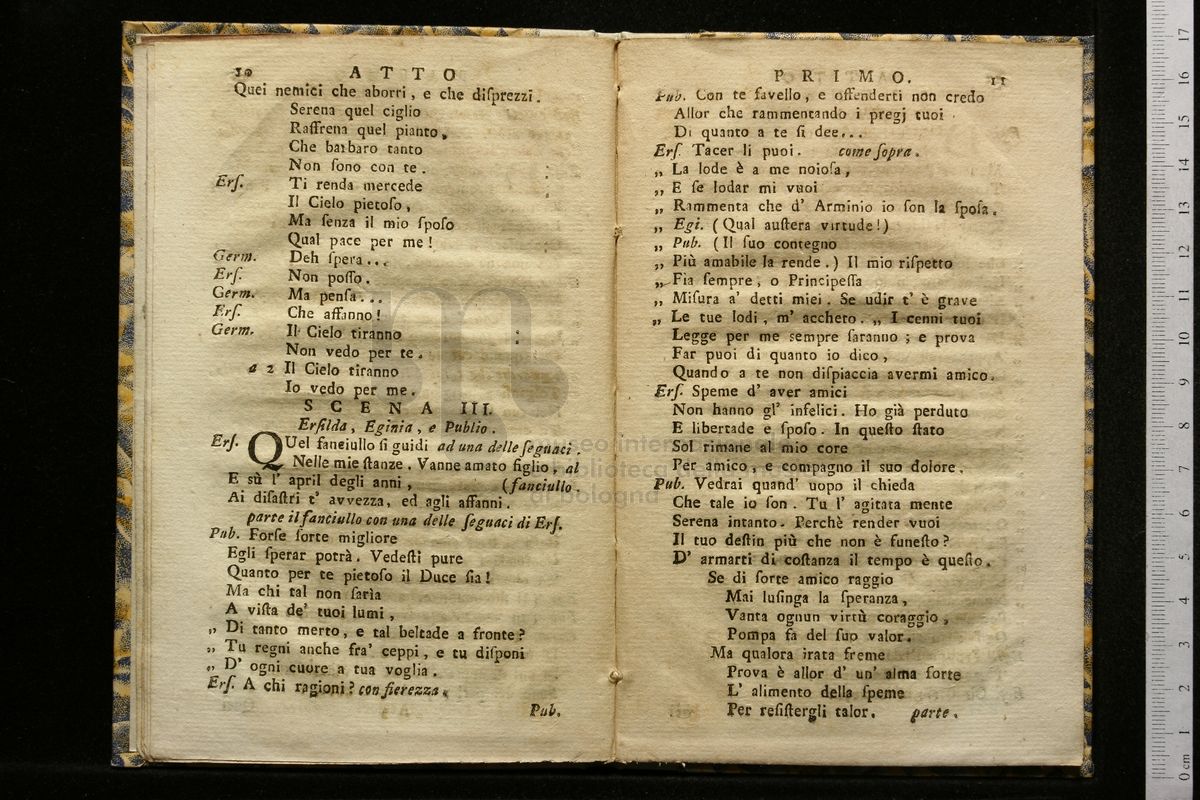 10 A T T O
Quei nemici che aborri, e che diſprezzi.
Serena quel ciglio
Raffrena quel pianto,
Che barbaro tanto
Non ſono con te.
Erſ. Ti renda mercede
Il Cielo pietoſo,
Ma ſenza il mio ſpoſo
Qual pace per me!
Germ. Deh ſpera...
Erſ. Non poſſo.
Germ. Ma penſa...
Erſ. Che affanno!
Germ. Il Cielo tiranno
Non vedo per te.
a 2 Il Cielo tiranno
Io vedo per me.
S C E N A III.
Erſilda, Eginia, e Publio.
Erſ. QUel fanciullo ſi guidi ad una delle ſeguaci.
Nelle mie ſtanze. Vanne amato figlio, al
E sù l' april degli anni, (fanciullo.
Ai diſaſtri t' avvezza, ed agli affanni.
parte il fanciullo con una delle ſeguaci di Erſ.
Pub. Forſe ſorte migliore
Egli ſperar potrà. Vedeſti pure
Quanto per te pietoſo il Duce ſia!
Ma chi tal non ſarìa
A viſta de' tuoi lumi,
„ Di tanto merto, e tal beltade a fronte?
„ Tu regni anche fra' ceppi, e tu diſponi
„ D' ogni cuore a tua voglia.
Erſ. A chi ragioni? con fierezza.
Pub.
P R I M O. 11
Pub. Con te favello, e offenderti non credo
Allor che rammentando i pregj tuoi
Di quanto a te ſi dee...
Erſ. Tacer li puoi. come ſopra.
„ La lode è a me noioſa,
„ E ſe lodar mi vuoi
„ Rammenta che d' Arminio io ſon la ſpoſa.
„ Egi. (Qual auſtera virtude!)
„ Pub. (Il ſuo contegno
„ Più amabile la rende.) Il mio riſpetto
„ Fia ſempre, o Principeſſa
„ Miſura a' detti miei. Se udir t' è grave
„ Le tue lodi, m' accheto. „ I cenni tuoi
Legge per me ſempre ſaranno; e prova
Far puoi di quanto io dico,
Quando a te non diſpiaccia avermi amico.
Erſ. Speme d' aver amici
Non hanno gl' infelici. Ho già perduto
E libertade e ſpoſo. In queſto ſtato
Sol rimane al mio core
Per amico, e compagno il suo dolore.
Pub. Vedrai quand' uopo il chieda
Che tale io ſon. Tu l' agitata mente
Serena intanto. Perchè render vuoi
Il tuo deſtin più che non è funeſto?
D' armarti di coſtanza il tempo è queſto.
Se di ſorte amico raggio
Mai luſinga la ſperanza,
Vanta ognun virtù coraggio,
Pompa fa del ſuo valor.
Ma qualora irata freme
Prova è allor d' un' alma forte
L' alimento della ſpeme
Per reſiſtergli talor. parte.